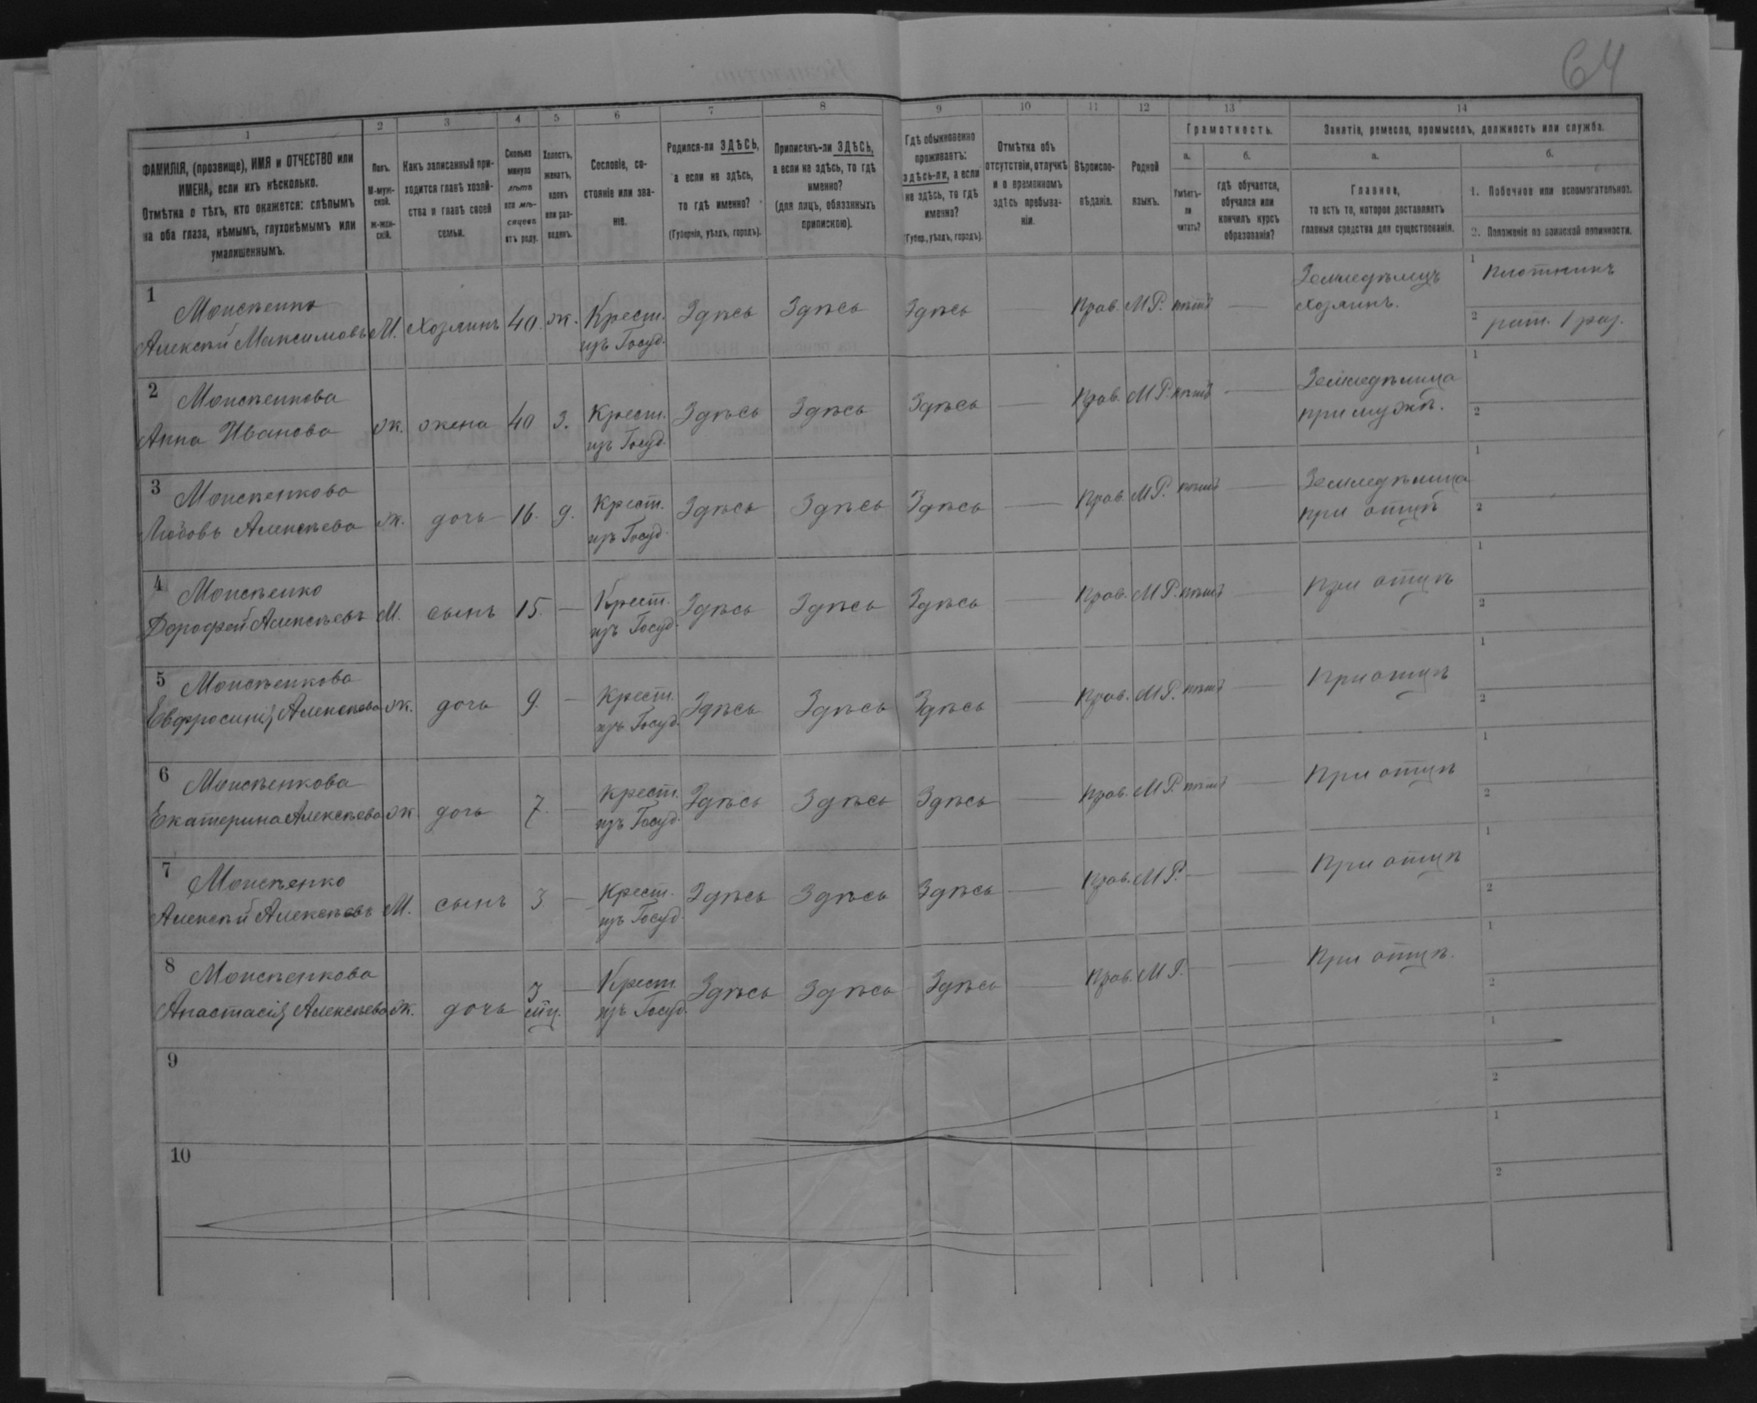 64
1 2 3 4 5 6 7 8 9 10 11 12 13 14
ФАМИЛІЯ, (прозвище), ИМЯ и ОТЧЕСТВО или
ИМЕНА, если ихъ нѣсколько.
Отмѣтка о тѣхъ, кто окажется: слѣпымъ
на оба глаза, нѣмымъ, глухонѣмымъ или
умалишеннымъ.
Полъ.
М-муж-
ской.
Ж-жен-
скій.
Какъ записанный при-
ходится главѣ хозяй-
ства и главѣ своей
семьи.
Сколько
минуло
лѣтъ
или мѣ-
сяцевъ
отъ роду.
Холостъ,
женатъ,
вдовъ
или раз-
веденъ.
Сословіе, со-
стояніе или зва-
ніе.
Родился-ли ЗДѢСЬ,
а если не здѣсь,
то гдѣ именно?
(Губернія, уѣздъ, городъ).
Приписанъ-ли ЗДѢСЬ,
а если не здѣсь, то гдѣ
именно?
(для лицъ, обязанныхъ
припискою).
Гдѣ обыкновенно
проживаетъ:
здѣсь-ли, а если
не здѣсь, то гдѣ
именно?
(Губер., уѣздъ, городъ).
Отмѣтка объ
отсутствіи, отлучкѣ
и о временномъ
здѣсь пребыва-
ніи.
Вѣроиспо-
вѣданіе.
Родной
языкъ.
Грамотность.
а.
Умѣетъ-
ли
читать?
б.
гдѣ обучается,
обучался или
кончилъ курсъ
образованія?
Занятіе, ремесло, промыселъ, должность или служба.
а.
Главное,
то есть то, которое доставляетъ
главныя средства для существованія.
б.
1. Побочное или вспомогательное.
2. Положеніе по воинской повинности.
1 Моисѣенко
Алексѣй Максимовъ М. Хозяинъ 40. ж. Крест.
изъ Госуд. Здѣсь Здѣсь Здѣсь Прав. М.Р. нѣтъ —
Земледѣлецъ
хозяинъ.
1 плотникъ
2 рат. 1 раз.
2 Моисѣенкова
Анна Иванова ж. жена 40 з. Крест.
изъ Госуд. Здѣсь Здѣсь Здѣсь — Прав. М.Р. нѣтъ —
Земледѣлица
при мужѣ.
1
2
3 Моисѣенкова
Любовь Алексѣева ж. дочь 16. д. Крест.
изъ Госуд. Здѣсь Здѣсь Здѣсь — Прав. М.Р. нѣтъ —
Земледѣлица
при отцѣ
1
2
4 Моисѣенко
Дорофей Алексѣевъ М. сынъ 15. — Крест.
изъ Госуд. Здѣсь Здѣсь Здѣсь — Прав. М.Р. нѣтъ —
При отцѣ
1
2
5 Моисѣенкова
Евфросинія Алексѣева ж. дочь 9. — Крест.
изъ Госуд. Здѣсь Здѣсь Здѣсь — Прав. М.Р. нѣтъ —
При отцѣ
1
2
6 Моисѣенкова
Екатерина Алексѣева ж дочь 7. — Крест.
изъ Госуд. Здѣсь Здѣсь Здѣсь — Прав. М.Р. нѣтъ —
При отцѣ
1
2
7 Моисѣенко
Алексѣй Алексѣевъ М. сынъ 3 — Крест.
изъ Госуд. Здѣсь Здѣсь Здѣсь — Прав. М.Р. — —
При отцѣ
1
2
8 Моисѣенкова
Анастасія Алексѣева ж. дочь 3
мц. — Крест
изъ Госуд. Здѣсь Здѣсь Здѣсь — Прав. М.Р. — —
При отцѣ.
1
2
9
1
2
10
1
2